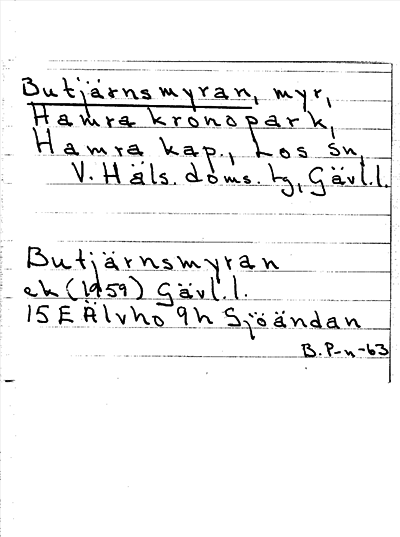 Butjärnsmyran, myr,
Hamra kronopark,
Hamra kap., Los sn,
V. Häls. doms. tg, Gävl.l.
Butjärnsmyran
ek (1959) Gävl.l.
15E Älvho 9h Sjöändan
B. P-n-63